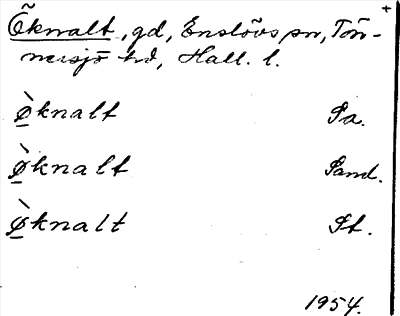 +
Öknalt, gd, Enslövs sn, Tön-
nersjö hd, Hall. l.
ø̲̀knalt Sa.
ø̲̀knalt Sand.
ø̲̀knalt St.
1954.